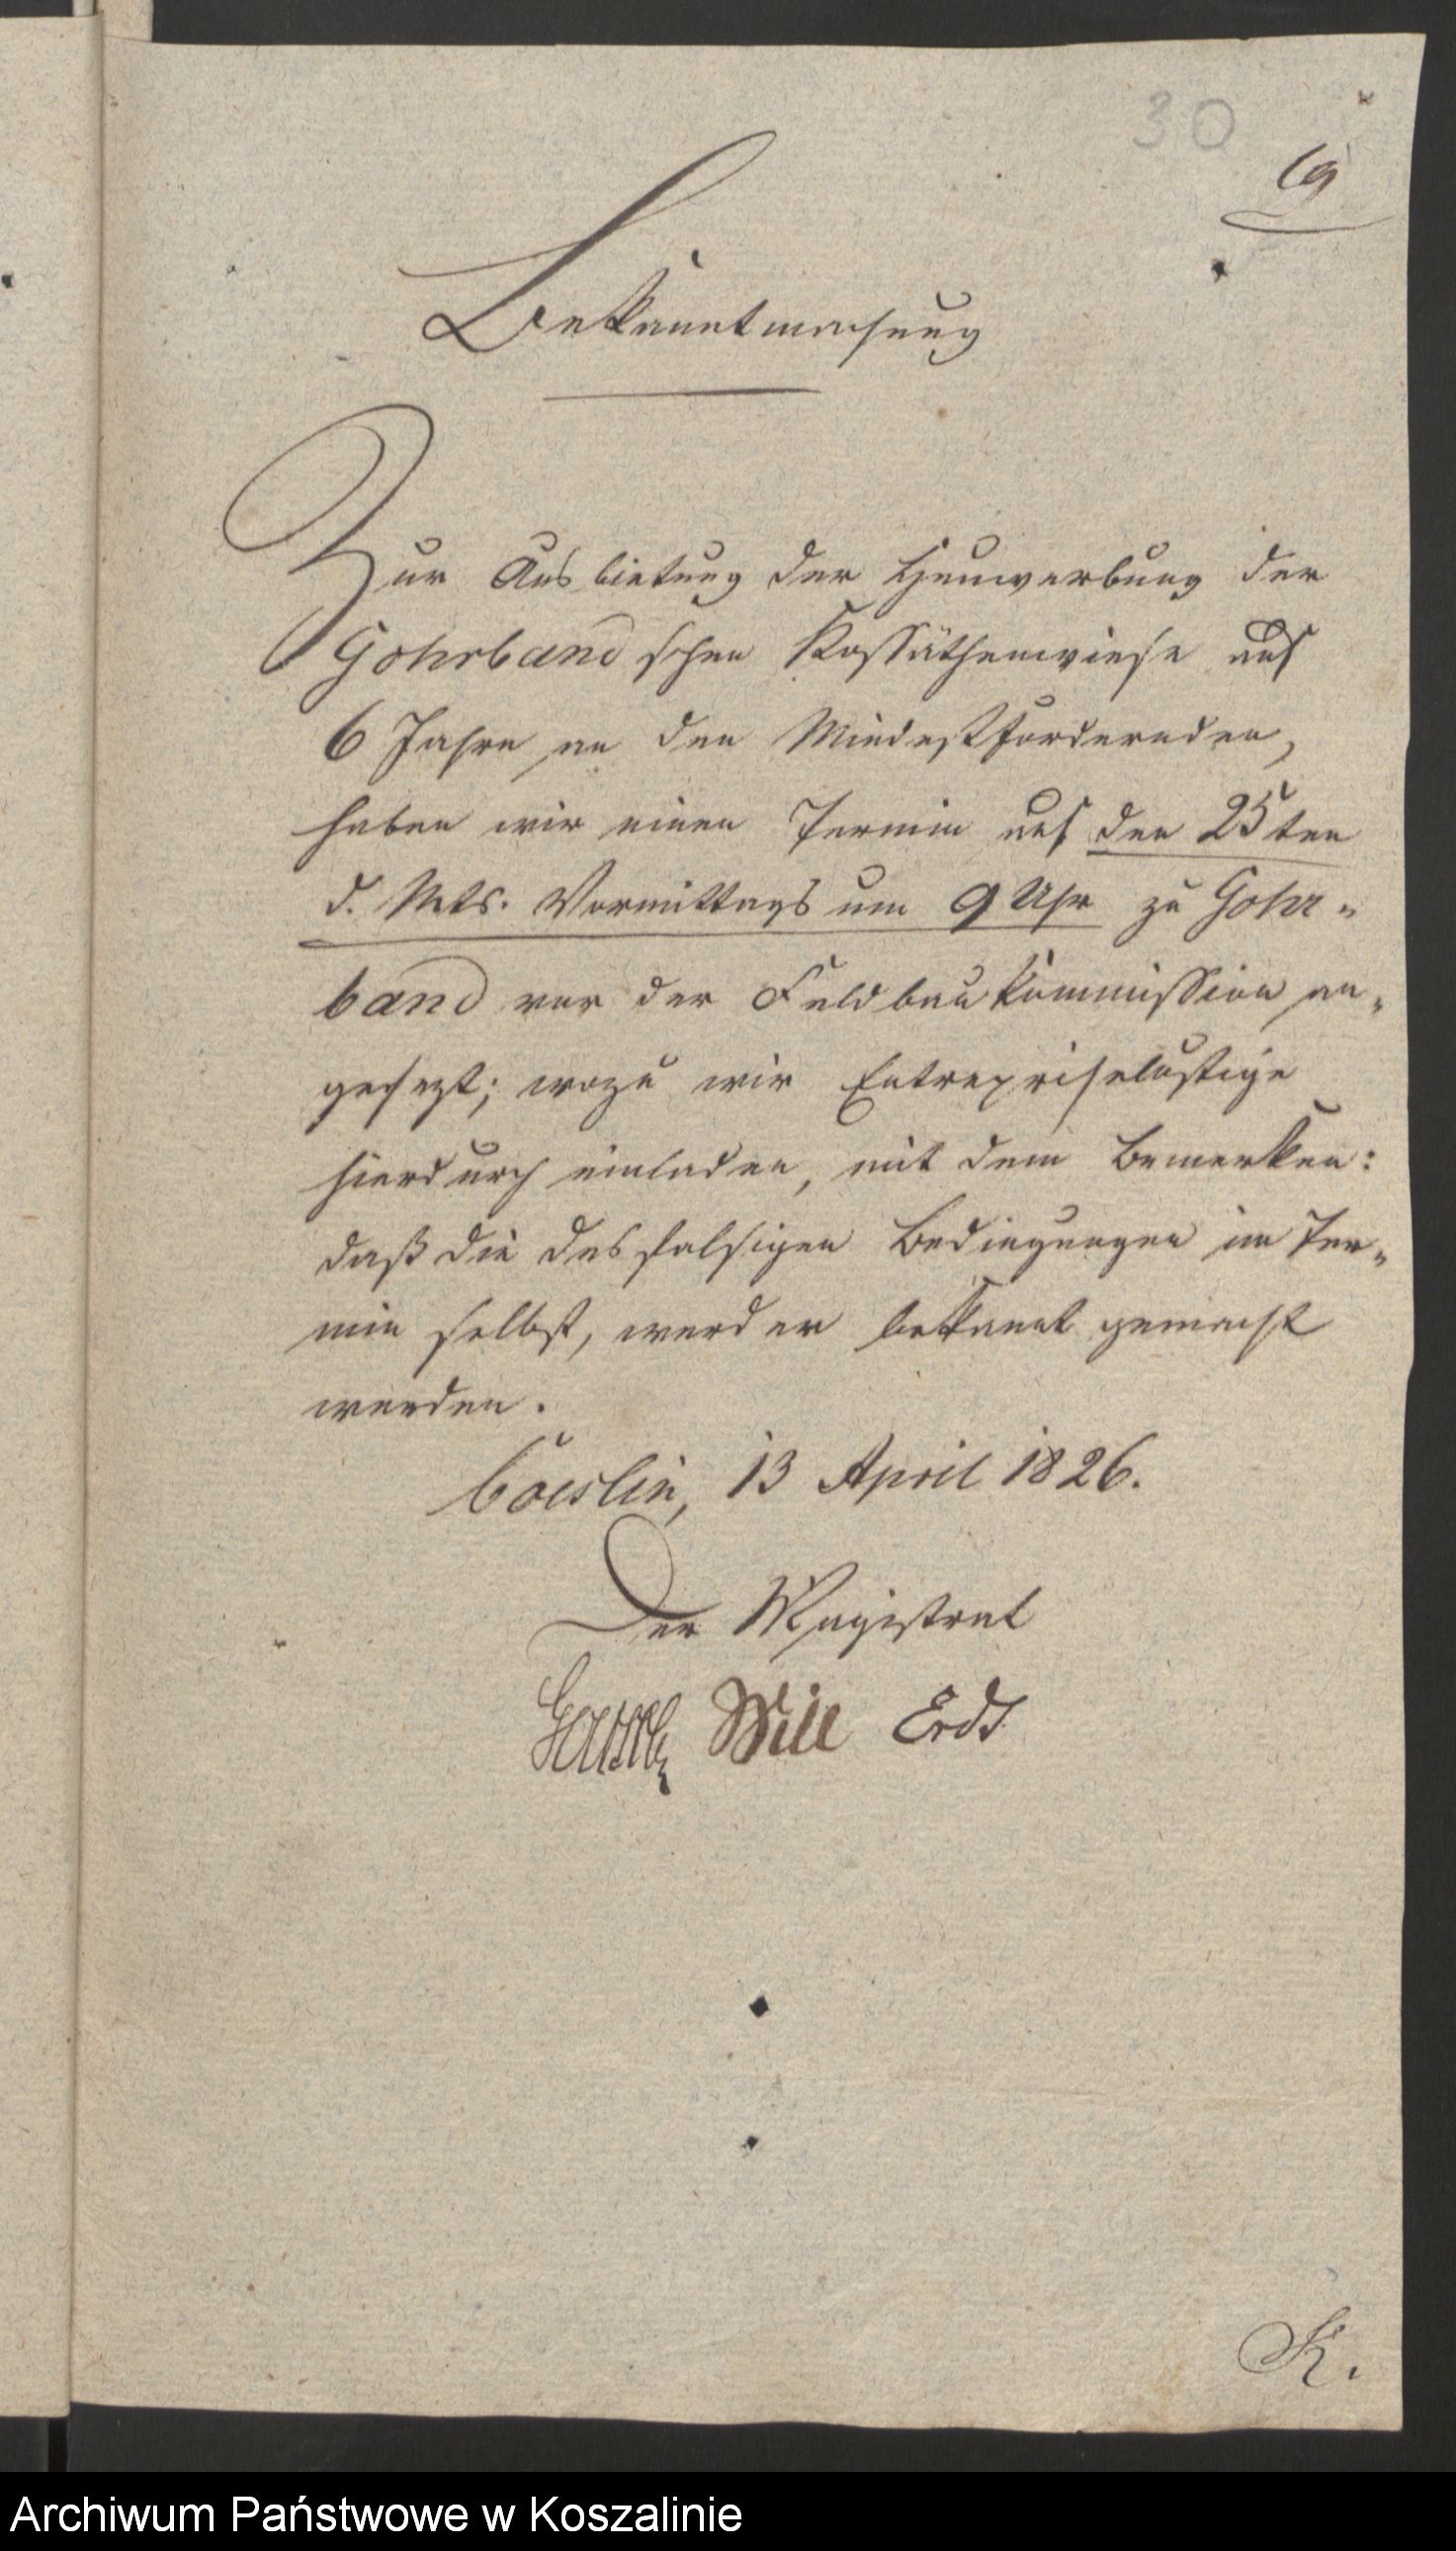 30
19
Bekanntmachung
Zur Ausbietung der Heuwerbung der
Gohrbandschen Kossäthenwiese auf
6 Jahre an den Mindestfordernden,
haben wir einen Termin auf den 25ten
d. Mts. Vormittags um 9 Uhr zu Gohr-
band vor der Feldbau Kommission an-
gesezt; wozu wir Entrepriselustige
hierdurch einladen, mit dem Bemerken:
daß die desfalsigen Bedingungen im Ter-
min selbst, werden bekannt gemacht
werden.
Coeslin, 13 April 1826.
Der Magistrat
Will
K.
Archiwum Państwowe w Koszalinie